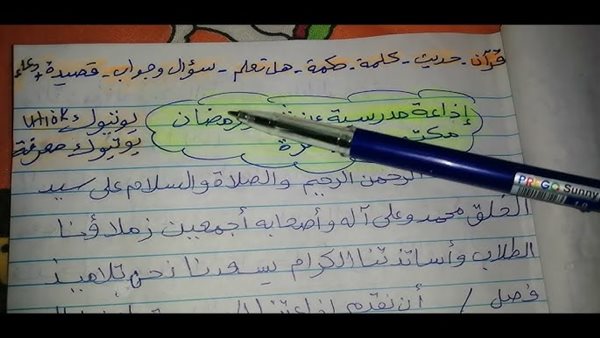 قرآن - حديث - كلمة - حكمة - هل تعلم - سؤال وجواب - قصيدة + دعاء
إذاعة مدرسية عن شهر رمضان
يوتيوب
يوتيوك معرفة
الرحمن الرحيم والصلاة والسلام على سيد
الخلق محمد وعلى آله وأصحابه أجمعين زملاؤنا
الطلاب وأساتذتنا الكرام يسعدنا نحن تلاميذ
فصل / أن نقدم
PRIGO Sunny